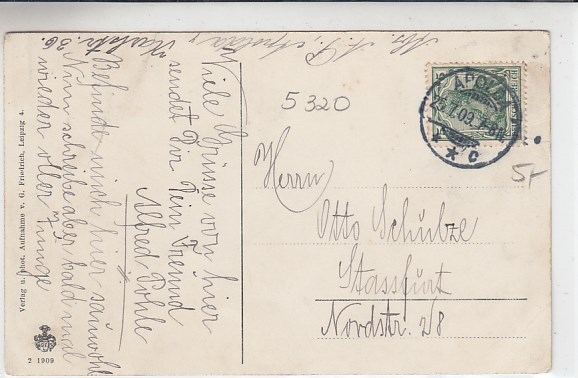 Viele Grüsse von hier
sendet Dir Dein Freund
Alfred Pohle
Befinde mich hier sauwohl
Nun schreibe aber bald mal
wieder oller Junge
Apolda, 36.
5320
APOLDA
09. 7-8N
* * c
5,-
Herrn
Otto Schulze
Stassfurt
Nordstr. 28
Verlag u. phot. Aufnahme v. G. Friedrich, Leipzig 4.
2 1909